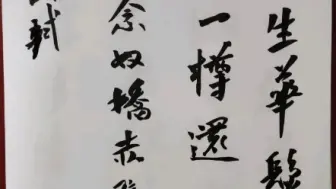 生華髮
一樽還
念奴嬌赤
軾